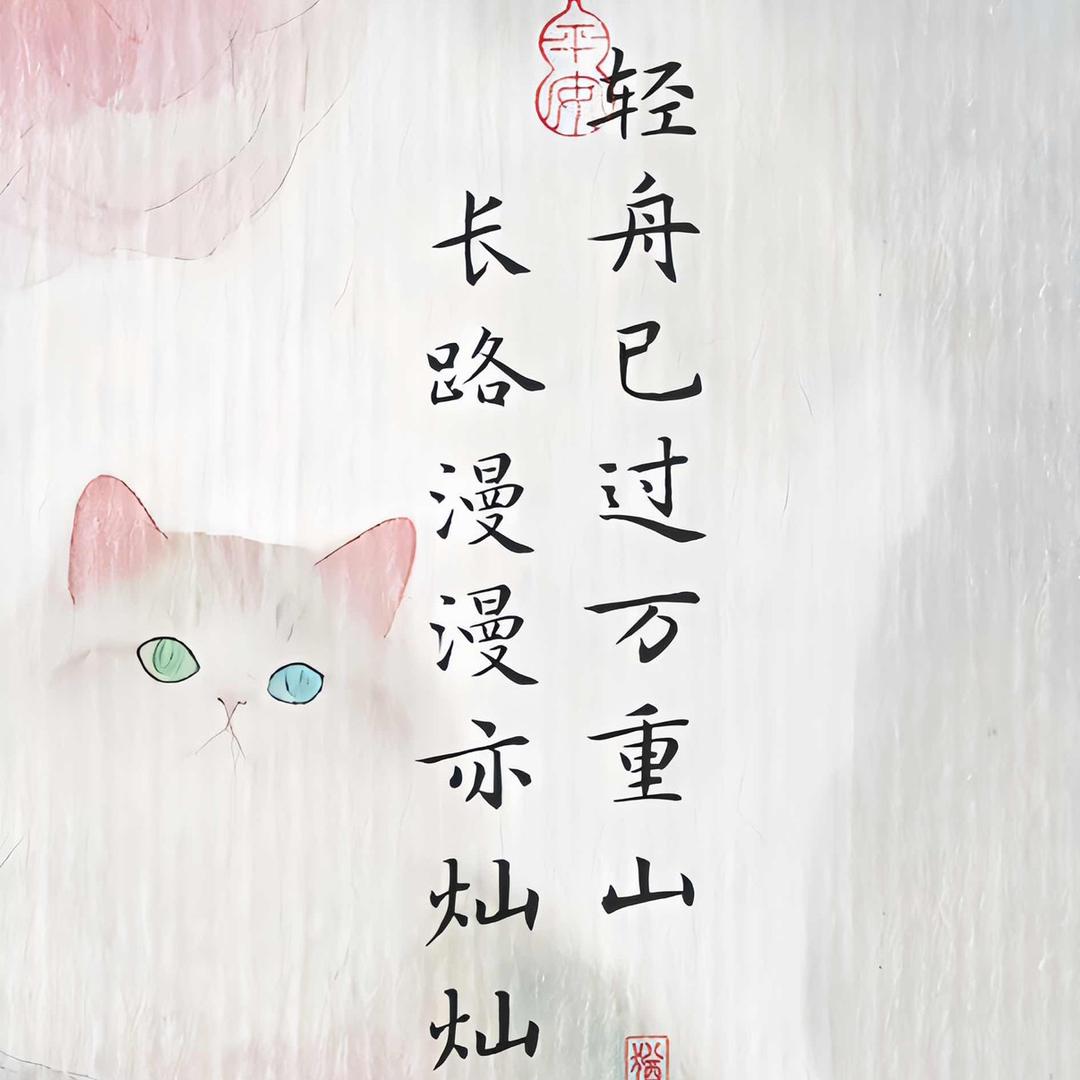 平安
轻舟已过万重山
长路漫漫亦灿灿